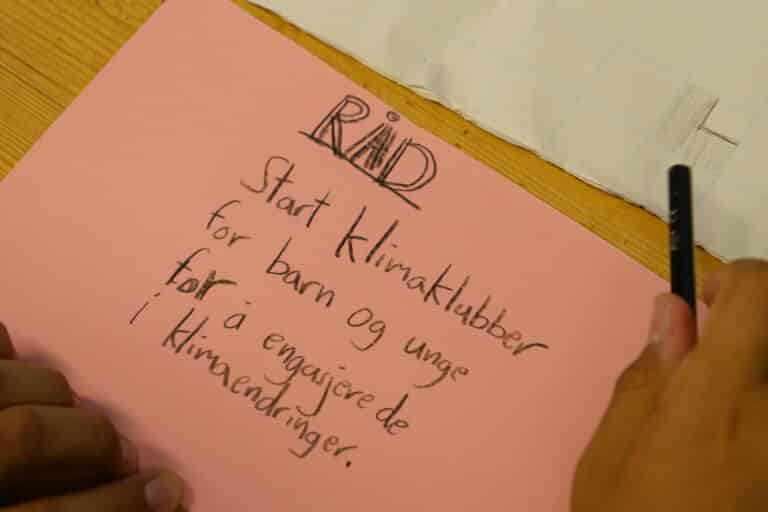 RÅD
Start klimaklubber
for barn og unge
for å engasjere de
i klimaendringer.